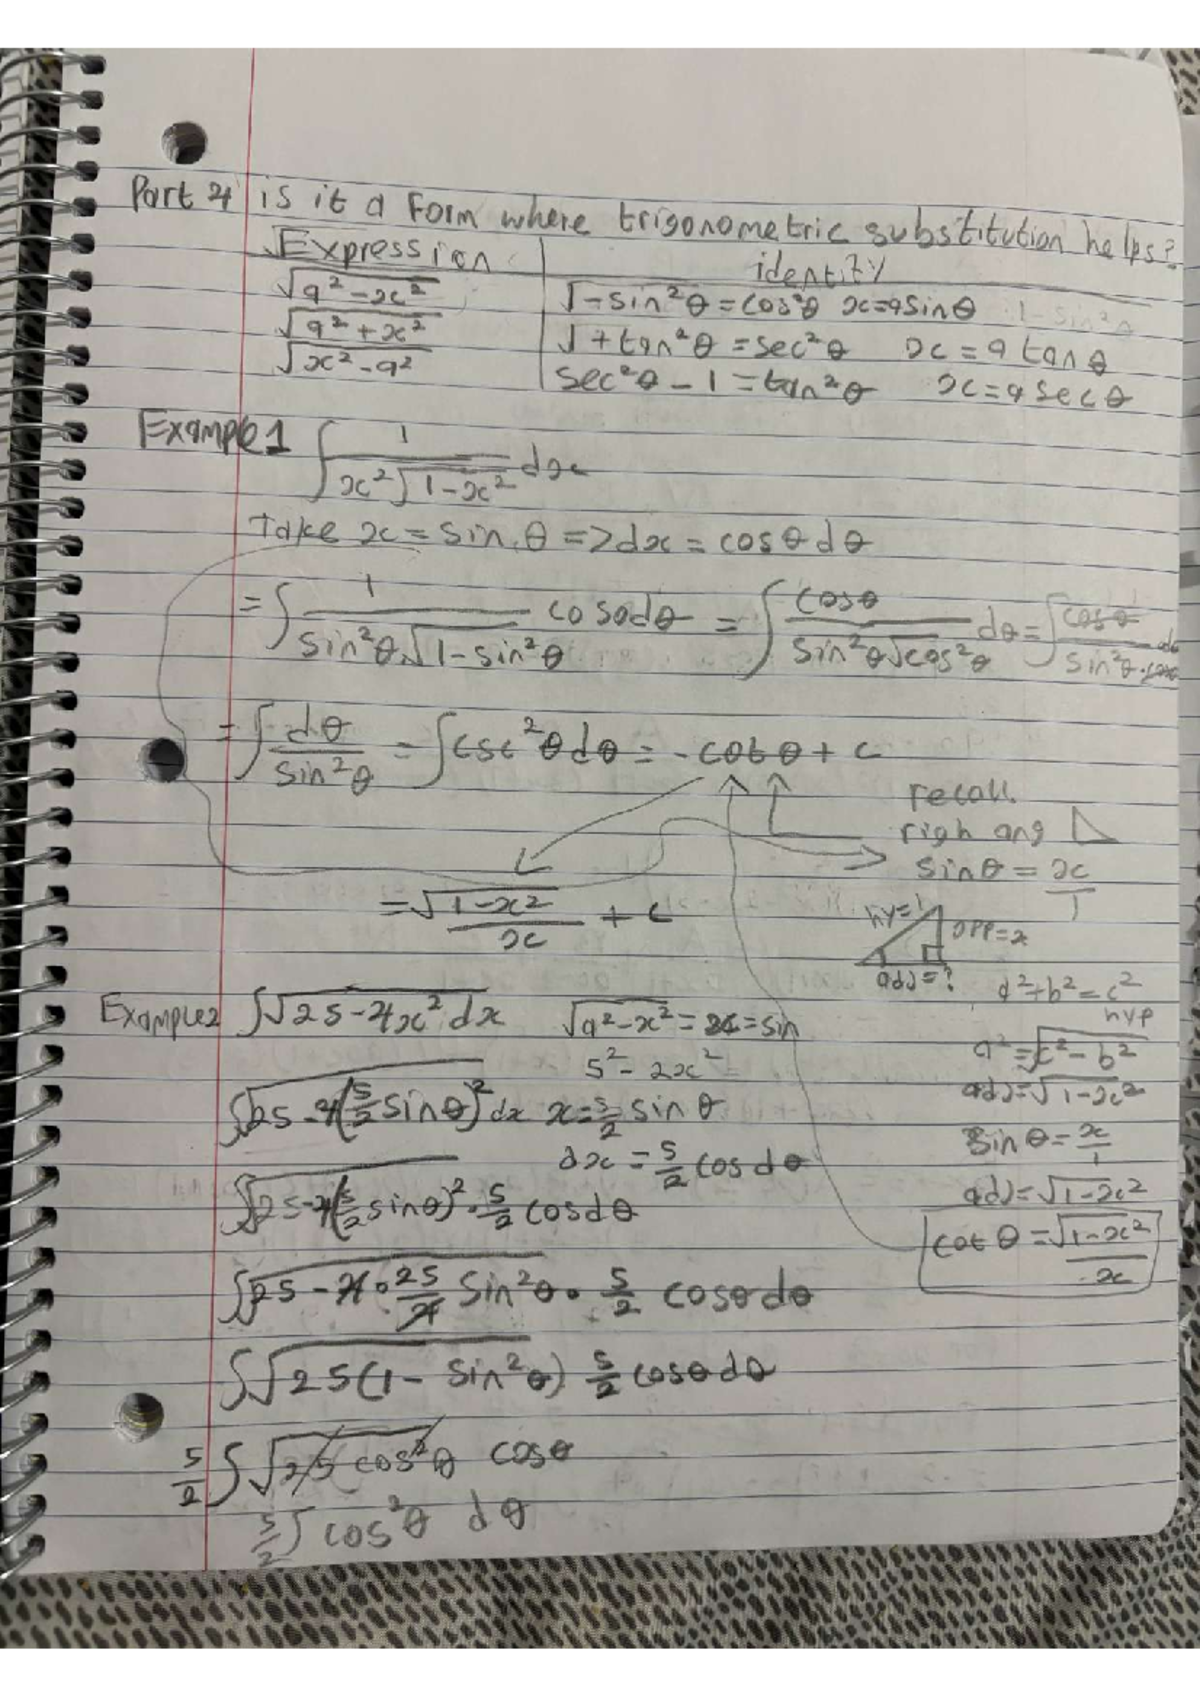 Part 4 is it a form where trigonometric substitution helps?
Expression identity
√a² - x² √-sin²θ = cos²θ x = a sinθ 1 - sin²θ
√a² + x² 1 + tan²θ = sec²θ x = a tanθ
√x² - a² sec²θ - 1 = tan²θ x = a secθ
Example 1 ∫ 1/(x²√1-x²) dx
Take x = sin θ => dx = cosθ dθ
= ∫ 1/(sin²θ √1-sin²θ) cosθdθ = ∫ cosθ/(sin²θ√cos²θ) dθ = ∫ cosθ/(sin²θ · cosθ) dθ
= ∫ dθ/sin²θ = ∫csc²θdθ = -cotθ + c
recall
righ ang
sinθ = x/1
= √1-x²/x + c
hy=1 opp=x
adj=?
a²+b²=c²
hyp
a² = √c² - b²
adj = √1-x²
sinθ = x/1
adj = √1-x²
cot θ = √1-x²/x
Example 2 ∫√25-4x² dx √a²-x² = x = sin
5² - 2x²
∫√25-4(5/2 sinθ)² dx x = 5/2 sinθ
dx = 5/2 cosdθ
∫√25-4(5/2 sinθ)² · 5/2 cosdθ
∫√25-4·25/4 sin²θ · 5/2 cosθdθ
∫√25(1-sin²θ) 5/2 cosθdθ
5/2 ∫√25cos²θ cosθ
5/2 ∫cos²θ dθ